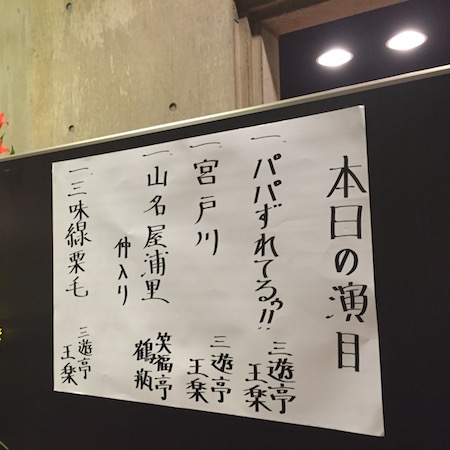 本日の演目
一、パパずれてるゥ!! 三遊亭王楽
一、宮戸川 三遊亭王楽
一、山名屋浦里 笑福亭鶴瓶
仲入り
一、三味線栗毛 三遊亭王楽